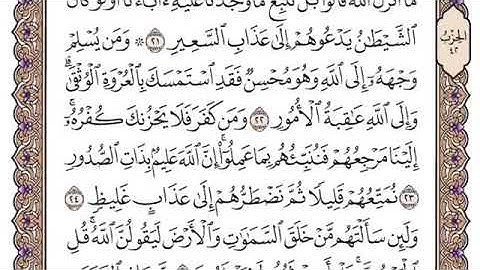 ما أنزل الله قالوا بل نتبع ما وجدنا عليه ءاباءنا أولو كان
ٱلشَّيْطَٰنُ يَدْعُوهُمْ إِلَىٰ عَذَابِ ٱلسَّعِيرِ ٢١ ۞ وَمَن يُسْلِمْ
وَجْهَهُۥٓ إِلَى ٱللَّهِ وَهُوَ مُحْسِنٌ فَقَدِ ٱسْتَمْسَكَ بِٱلْعُرْوَةِ ٱلْوُثْقَىٰ ۗ
وَإِلَى ٱللَّهِ عَٰقِبَةُ ٱلْأُمُورِ ٢٢ وَمَن كَفَرَ فَلَا يَحْزُنكَ كُفْرُهُۥٓ ۚ
إِلَيْنَا مَرْجِعُهُمْ فَنُنَبِّئُهُم بِمَا عَمِلُوٓا۟ ۚ إِنَّ ٱللَّهَ عَلِيمٌۢ بِذَاتِ ٱلصُّدُورِ
٢٣ نُمَتِّعُهُمْ قَلِيلًا ثُمَّ نَضْطَرُّهُمْ إِلَىٰ عَذَابٍ غَلِيظٍ ٢٤
وَلَئِن سَأَلْتَهُم مَّنْ خَلَقَ ٱلسَّمَٰوَٰتِ وَٱلْأَرْضَ لَيَقُولُنَّ ٱللَّهُ ۚ قُلِ
الحزب
٤٢